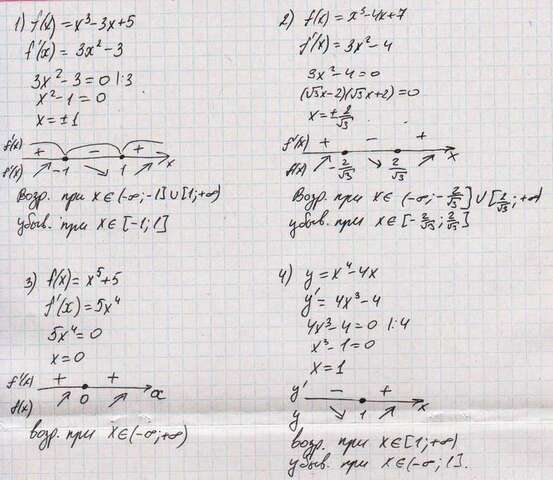 1) f(x) = x³-3x+5
f'(x) = 3x²-3
3x²-3=0 |:3
x²-1=0
x=±1
f'(x) + - + x
f'(x) ↗ -1 ↘ 1 ↗
Возр. при x∈(-∞;-1]∪[1;+∞)
убыв. при x∈[-1;1]
2) f(x) = x³-4x+7
f'(x) = 3x²-4
3x²-4=0
(√3x-2)(√3x+2)=0
x=±2/√3
f'(x) + - + x
f(x) ↗ -2/√3 ↘ 2/√3 ↗
Возр. при x∈(-∞;-2/√3]∪[2/√3;+∞)
убыв. при x∈[-2/√3;2/√3]
3) f(x) = x⁵+5
f'(x) = 5x⁴
5x⁴=0
x=0
f'(x) + + x
f(x) ↗ 0 ↗
возр. при x∈(-∞;+∞)
4) y=x⁴-4x
y'=4x³-4
4x³-4=0 |:4
x³-1=0
x=1
y' - + x
y ↘ 1 ↗
возр. при x∈[1;+∞)
убыв. при x∈(-∞;1].